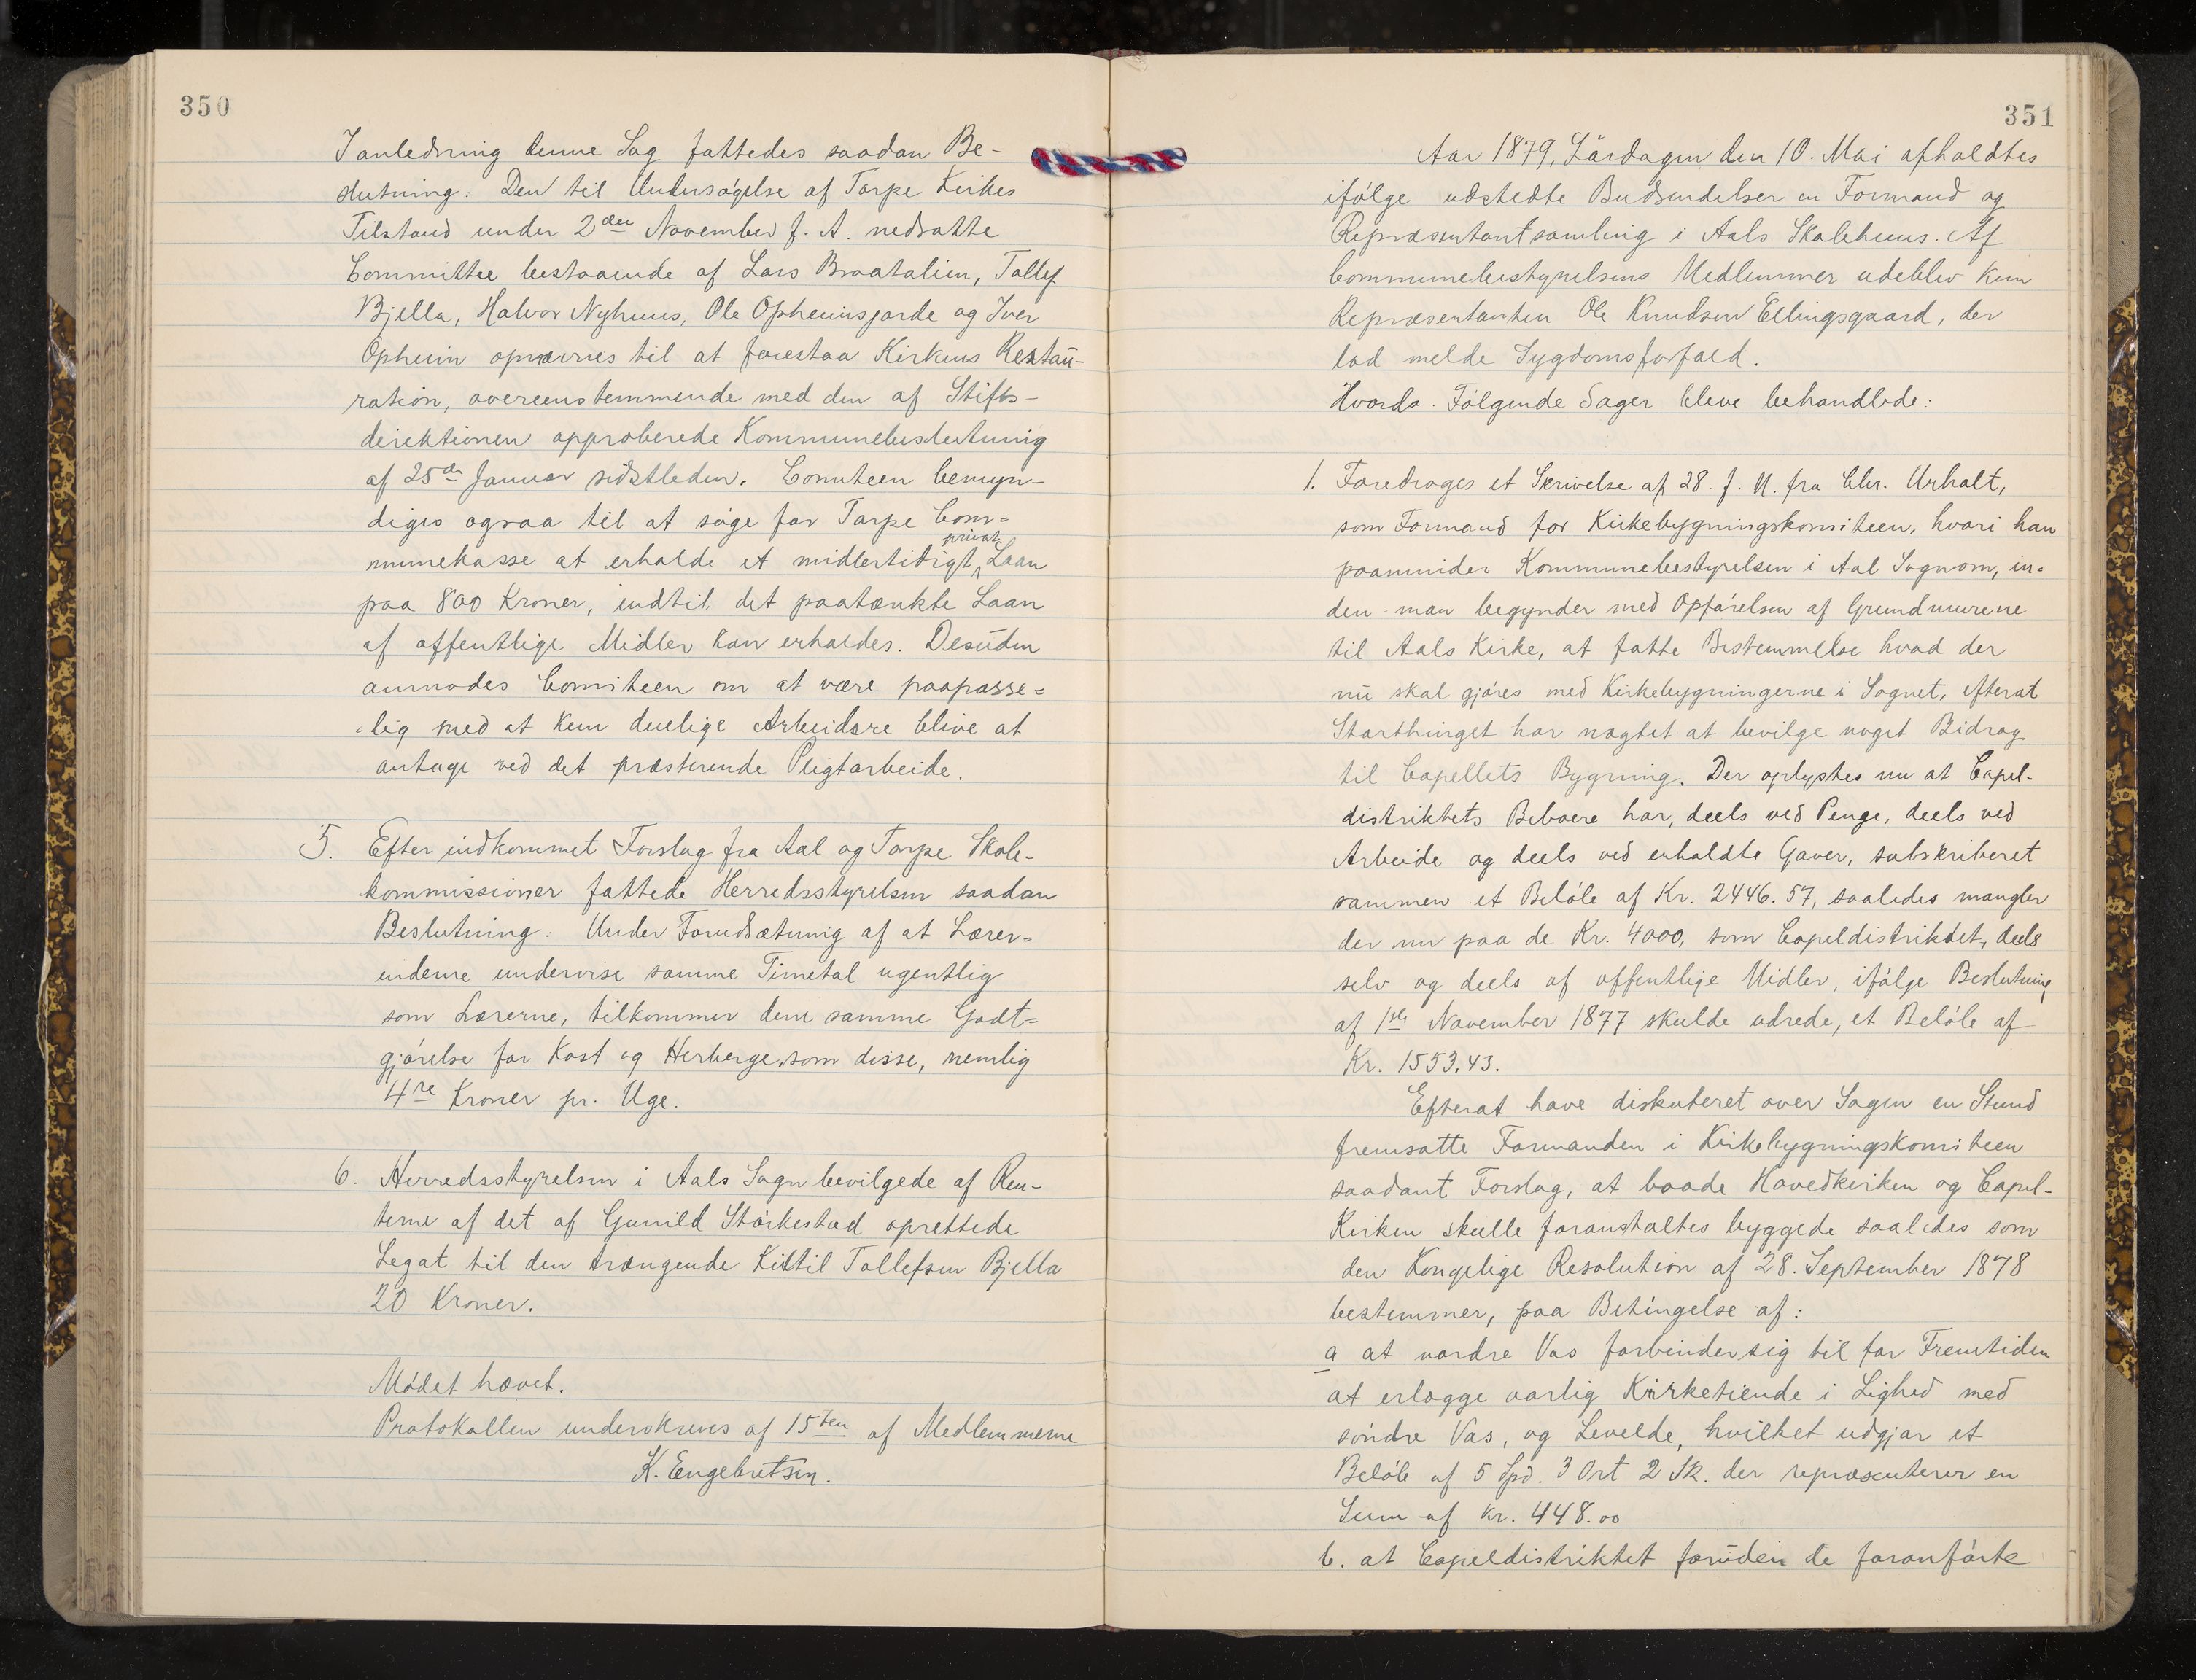 350
I anledning denne Sag fattedes saadan Be-
slutning: Den til Undersøgelse af Torpe Kirkes
Tilstand under 2den November f. A. nedsatte
Committee bestaaende af Lars Braatalien, Tollef
Bjella, Halvor Nyhuus, Ole Opheimsjorde og Iver
Opheim opnævnes til at forestaa Kirkens Restau-
ration, overeenstemmende med den af Stifts-
direktionen approberede Kommunebeslutning
af 25de Januar sidstleden. Comiteen bemyn-
diges ogsaa til at søge for Torpe Com=
munekasse at erholde et midlertidigt privat Laan
paa 800 Kroner, indtil det paatænkte Laan
af offentlige Midler kan erholdes. Desuden
anmodes Comiteen om at være paapasse=
lig med at kun duelige Arbeidere blive at
antage ved det præsterende Pligtarbeide.
5. Efter indkommet Forslag fra Aal og Torpe Skole-
kommissioner fattede Herredsstyrelsen saadan
Beslutning: Under Forudsætning af at Lærer=
inderne undervise samme Timetal ugentlig
som Lærerne, tilkommer dem samme Godt=
gjørelse for Kost og Herberge som disse, nemlig
4re Kroner pr. Uge.
6. Herredsstyrelsen i Aals Sogn bevilgede af Ren-
terne af det af Gunild Størkestad oprettede
Legat til den trængende Kittil Tollefsen Bjella
20 Kroner.
Mødet hævet.
Protokollen underskreves af 15ten af Medlemmerne
K. Engebretsen.
351
Aar 1879, Lørdagen den 10. Mai afholdtes
ifølge udstedte Budsendelser en Formand og
Repræsentantsamling i Aals Skolehuus. Af
Communebestyrelsens Medlemmer udeblev kun
Repræsentanten Ole Knudsen Ellingsgaard, der
lod melde Sygdomsforfald.
Hvorda Følgende Sager bleve behandlede:
1. Foredroges et Skrivelse af 28. f. M. fra Chr. Urholt,
som Formand for Kirkebygningskomiteen, hvori han
paaminder Kommunebestyrelsen i Aal Sogn om, in=
den man begynder med Opførelsen af Grundmurene
til Aals Kirke, at fatte Bestemmelse hvad der
nu skal gjøres med Kirkebygningerne i Sognet, efterat
Storthinget har nægtet at bevilge noget Bidrag
til Capellets Bygning. Der oplystes nu at Capel-
distriktets Beboere har, deels ved Penge, deels ved
Arbeide og deels ved erholdte Gaver, subskriberet
sammen et Beløb af Kr. 2446.57, saaledes mangler
der nu paa de Kr. 4000, som Capeldistriktet, deels
selv og deels af offentlige Midler, ifølge Beslutning
af 1ste November 1877 skulde udrede, et Beløb af
Kr. 1553.43.
Efterat have diskuteret over Sagen en Stund
fremsatte Formanden i Kirkebygningskomiteen
saadant Forslag, at baade Hovedkirken og Capel-
Kirken skulle foranstaltes byggede saaledes som
den Kongelige Resolution af 28. September 1878
bestemmer, paa Betingelse af:
a at nordre Vas forbinder sig til for Fremtiden
at erlægge aarlig Kirketiende i Lighed med
søndre Vas, og Levelde, hvilket udgjør et
Beløb af 5 Spd. 3 Ort 2 Sk. der repræsenterer en
Sum af kr. 448.00
b. at Capeldistriktet foruden de foranførte